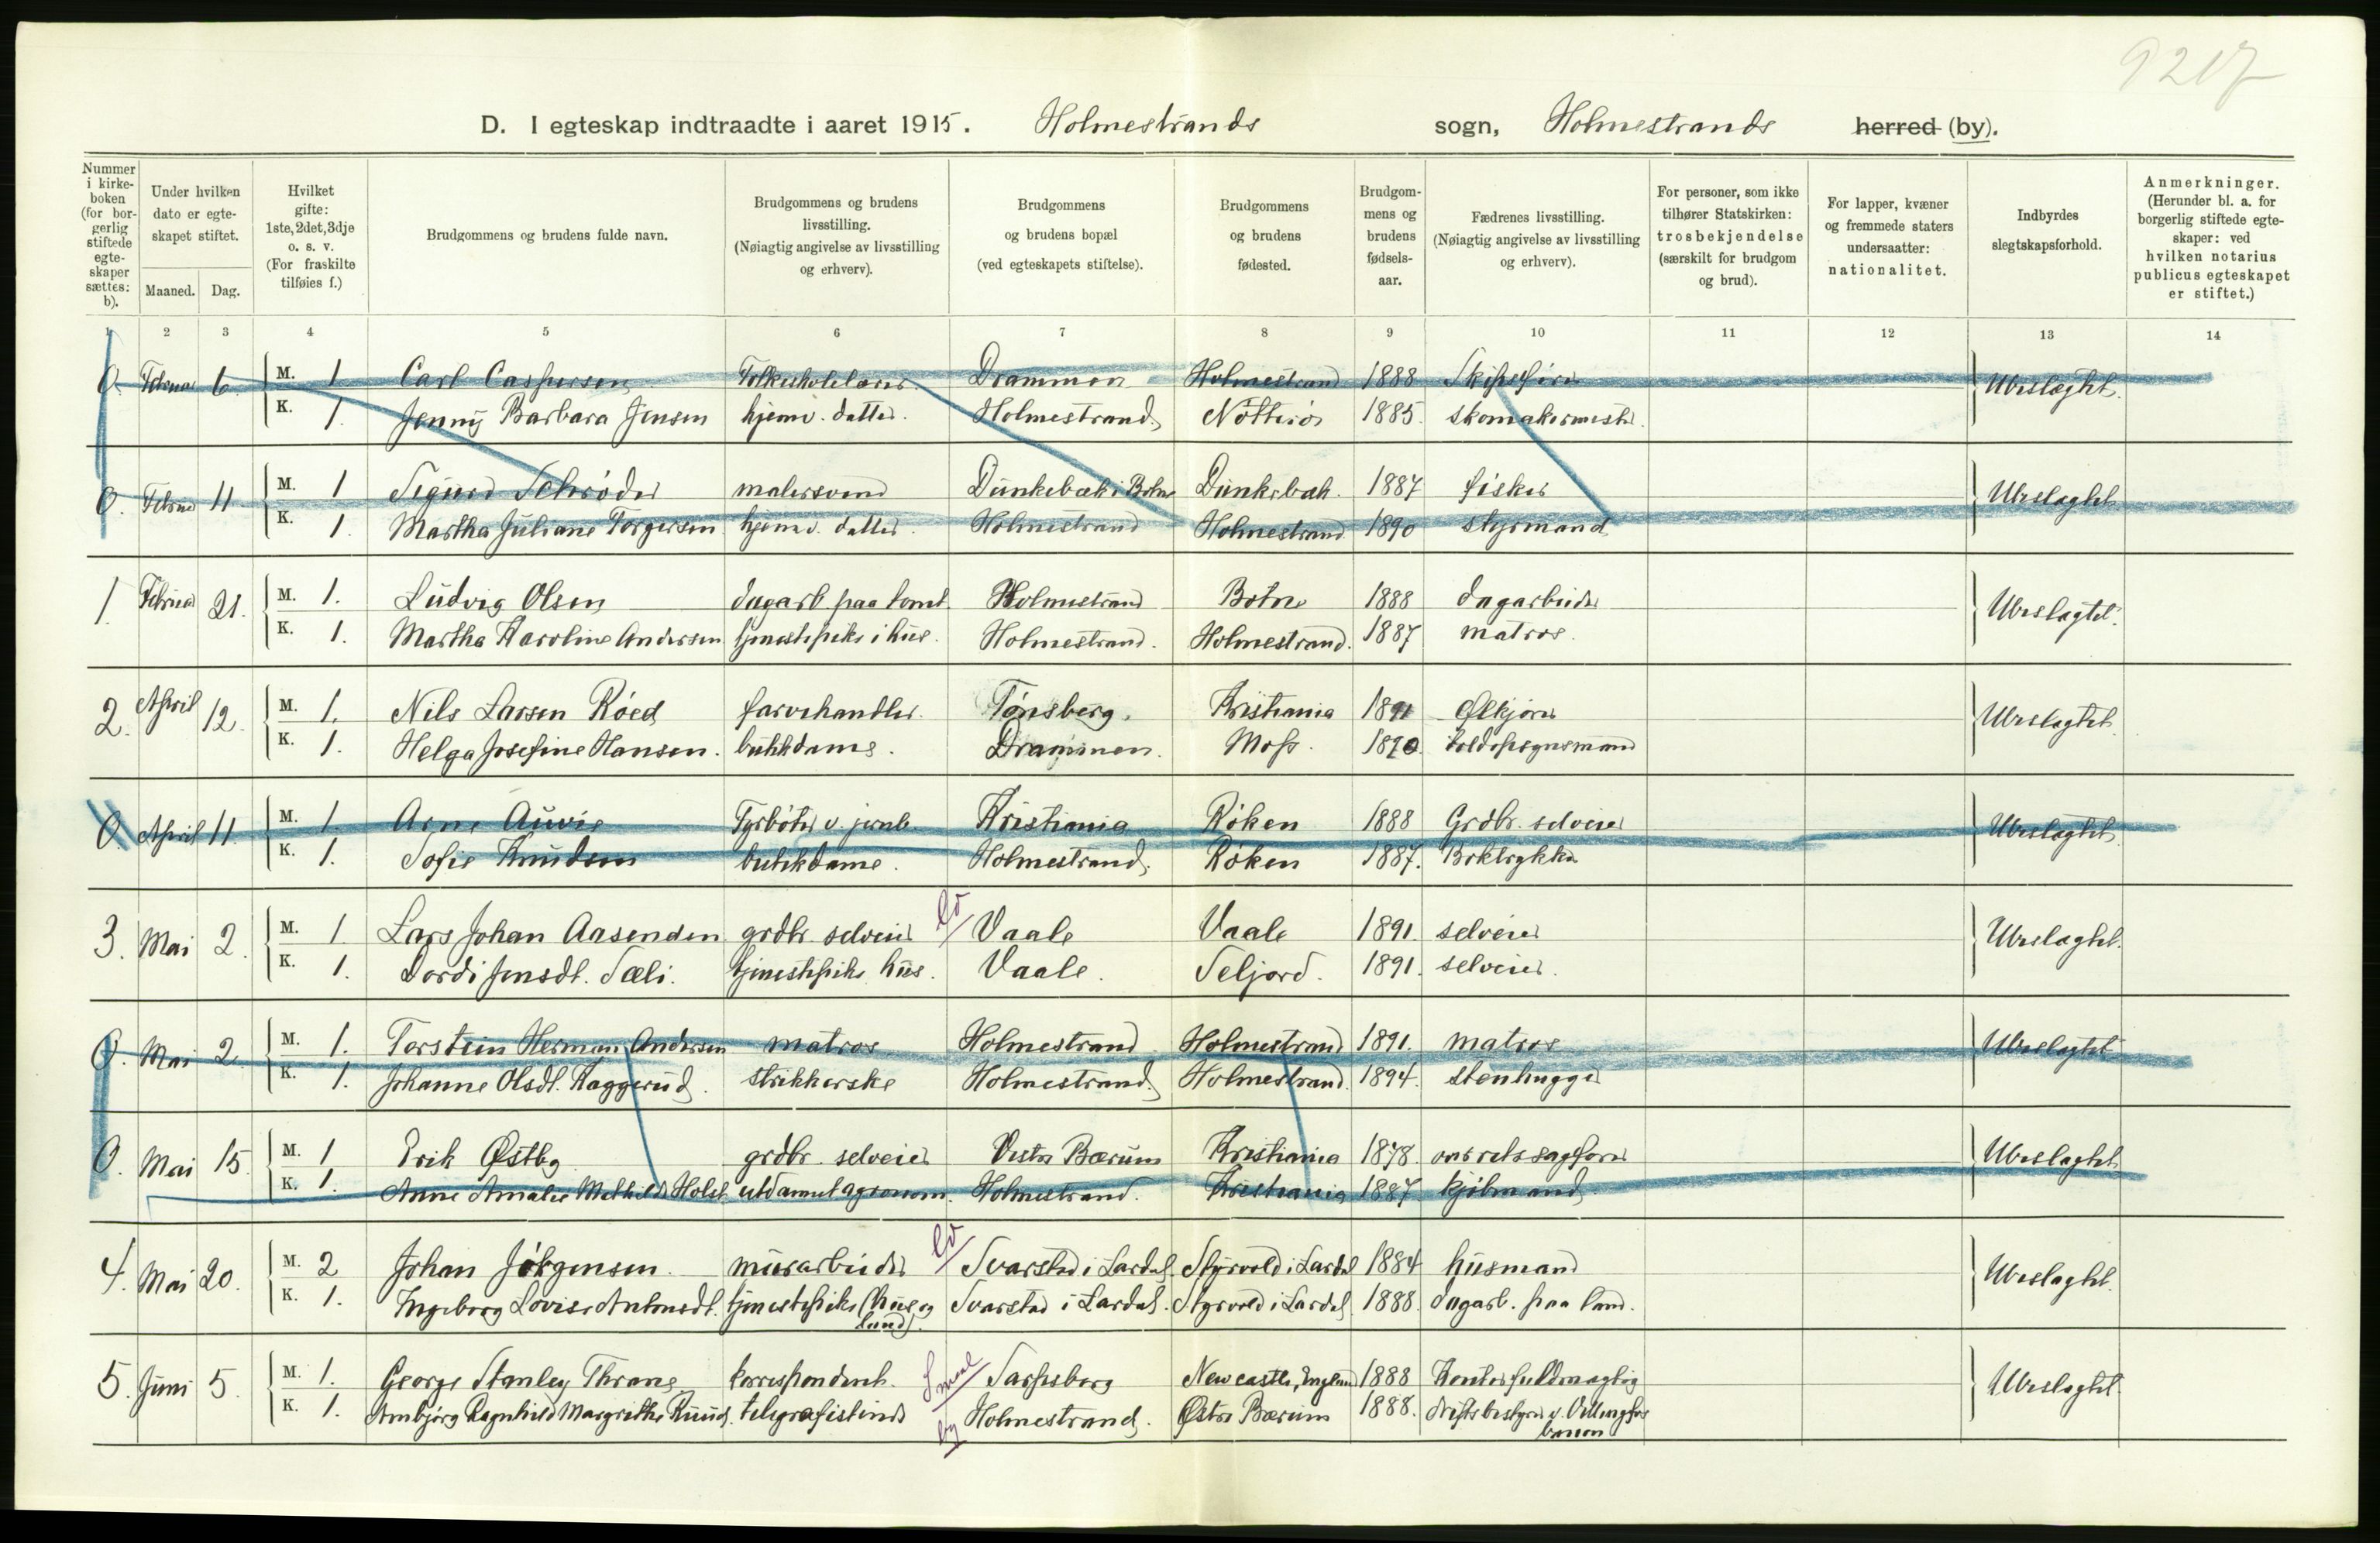 9217
D. I egteskap indtraadte i aaret 1915. Holmestrands sogn, Holmestrands herred (by).
Nummer i kirke-boken (for bor-gerlig stiftede egte-skaper sættes: b).
Under hvilken dato er egte-skapet stiftet.
Maaned. Dag.
Hvilket gifte: 1ste, 2det, 3dje o. s. v. (For fraskilte tilføies f.)
Brudgommens og brudens fulde navn.
Brudgommens og brudens livsstilling. (Nøiagtig angivelse av livsstilling og erhverv).
Brudgommens og brudens bopæl (ved egteskapets stiftelse).
Brudgommens og brudens fødested.
Brudgom-mens og brudens fødsels-aar.
Fædrenes livsstilling. (Nøiagtig angivelse av livsstilling og erhverv).
For personer, som ikke tilhører Statskirken: trosbekjendelse (særskilt for brudgom og brud).
For lapper, kvæner og fremmede staters undersaatter: nationalitet.
Indbyrdes slegtskapsforhold.
Anmerkninger. (Herunder bl. a. for borgerlig stiftede egte-skaper: ved hvilken notarius publicus egteskapet er stiftet.)
1 2 3 4 5 6 7 8 9 10 11 12 13 14
0. Februar 6 M. 1 Carl Caspersen Folkeskolelærer Drammen Holmestrand 1888 Skipsfører Ubeslægtet.
K. 1. Jenny Barbara Jensen hjemv. datter. Holmestrand. Nøtterø 1885. skomakermester.
0. Februar 11 M. 1 Sigurd Schrøder malersvend Dunkebæk i Botne Dunkebæk. 1887 fisker Ubeslægtet
K. 1. Martha Juliane Torgersen hjemv. datter. Holmestrand Holmestrand 1890 styrmand
1. Februar 21. M. 1. Ludvig Olsen dagarb paa tomt Holmestrand Botne 1888 dagarbeider Ubeslægtet.
K. 1. Martha Karoline Andersen tjenestepike i hus. Holmestrand. Holmestrand. 1887 matros.
2. April 12. M. 1. Nils Larsen Røed farvehandler. Tønsberg. Kristiania 1891 Ølkjører Ubeslægtet.
K. 1. Helga Josefine Hansen. butikdame. Drammen. Moss. 1890. toldopsynsmand
0. April 11. M. 1. Arne Auvie Fyrbøter v. jernb. Kristiania Røken 1888 Grdbr. selveier Ubeslægtet.
K. 1. Sofie Knudsen butikdame. Holmestrand. Røken 1887.
3. Mai 2. M. 1. Lars Johan Aasenden grdbr. selveier ld Vaale Vaale 1891. selveier Ubeslægtet.
K. 1. Dordi Jensdt. Sæli. tjenestepike hus. Vaale. Seljord. 1891. selveier.
0. Mai 2. M. 1. Torstein Herman Andersen matros Holmestrand Holmestrand 1891. matros Ubeslægtet
K. 1. Johanne Olsdt. Haggerud. strikkerske Holmestrand. Holmestrand. 1894. stenhugger
0. Mai 15 M. 1 Erik Østby grdbr. selveier Vestre Bærum Kristiania 1878. overretssagfører Ubeslægtet
K. 1. Anne Amalie Methilde Holst. utdannet agronom. Holmestrand. Kristiania 1887 kjøbmand.
4. Mai 20. M. 2 Johan Jørgensen. murarbeider ld Svarstad i Lardal. Styrvold i Lardal 1884 husmand Ubeslægtet.
K. 1. Ingeborg Lovise Antonsdt. tjenestepike (hus og land). Svarstad i Lardal. Styrvold i Lardal. 1888. dagarb. paa land.
5. Juni 5. M. 1. George Stanley Thrane korrespondent. Smaal Sarpsborg Newcastle, England 1888 Kontorfuldmægtig Ubeslægtet
K. 1. Ambjørg Ragnhild Margrethe Ruud. telegrafistinde by Holmestrand. Østre Bærum 1888. Driftsbestyrer v. Vittingfos banen